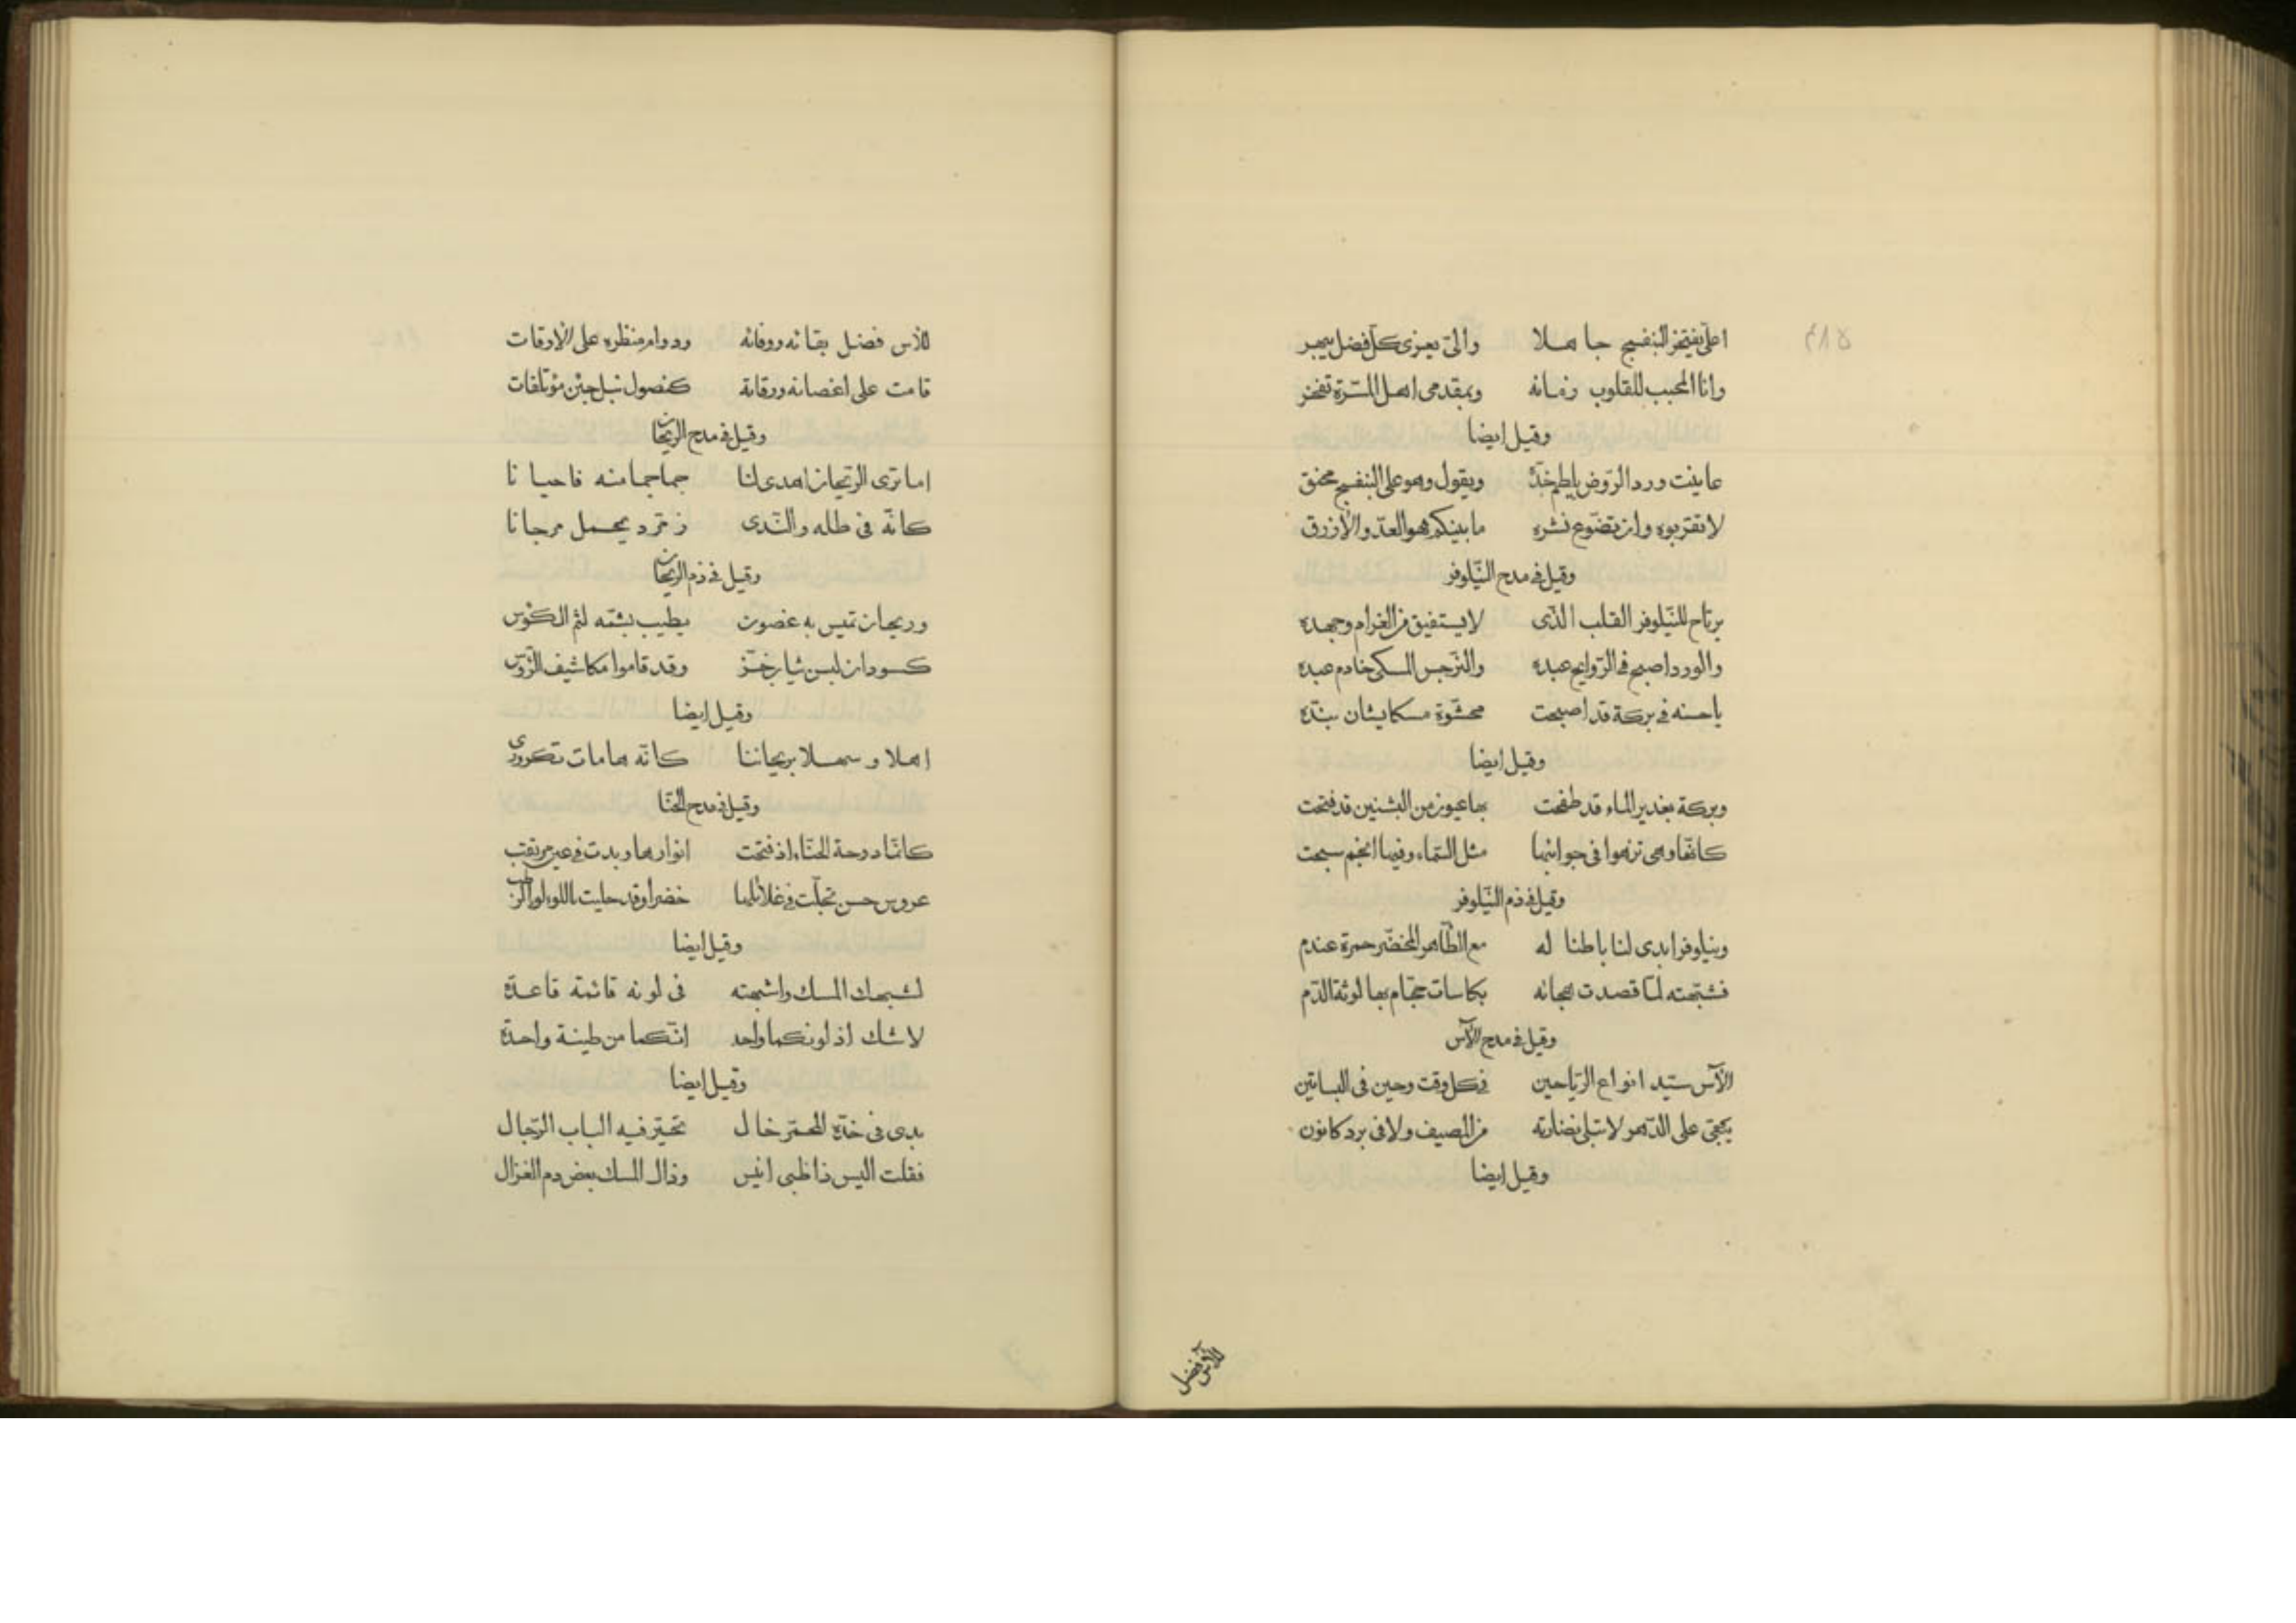 اعليّ يفتخر البنفسج جاهلا والىّ يعزى كلّ فضل يبهر
وانا المحبب للقلوب زمانه وبمقدمى اهل المسّرة تفخر
وقيل ايضا
عاينت ورد الرّوض يلطم خدّه ويقول وهو على البنفسج محنق
لا تقربوه وان تضّوع نشره ما بينكم فهو العدّو الازرق
وقيل فى مدح النّيلوفر
يرتاح للنّيلوفر القلب الذى لا يستفيق من الغرام وجهده
والورد اصبح فى الرّوايح عبده والنّرجس المسكى خادم عبده
ياحسنه فى بركة قد اصبحت محشّوة مسكا يشان بندّه
وقيل ايضا
وبركة بغدير الماء قد طفحت بها عيون من البشنين قد فتحت
كانّها وهى تزهوا فى جوانبها مثل السّماء وفيها انجم سبحت
وقيل فى ذم النّيلوفر
ونيلوفر ابدى لنا باطنا له مع الظّاهر المخضّر حمرة عندم
فشبّهته لمّا قصدت هجانه بكاسات حجّام بها لوثة الدّم
وقيل فى مدح الآس
الآس سيّد انواع الرّياحين فى كل وقت وحين فى البساتين
يبقى على الدّهر لا تبلى نضارته من المصيف ولا فى برد كانون
وقيل ايضا
للآس فضل
للآس فضل بقائه ووفائه ودوام منظره على الاوقات
قامت على اغصانه ورقاته كنصول نبل جئن مؤتلفات
وقيل فى مدح الريحان
اما ترى الرّيحان اهدى لنا جماجما منه فاحيانا
كانّه فى طله والنّدى زمّرد يحمل مرجانا
وقيل فى ذم الريحان
وريحان تميس به غصون يطيب بشمّه لثم الكؤس
كسودان لبسن ثياب خزّ وقد قاموا مكاشيف الرّؤس
وقيل ايضا
اهلا وسهلا بريحاننا كانّه هامات تكرورى
وقيل فى مدح الحنّا
كانّما دوحة الحنّاء اذ فتحت انوارها وبدت فى عين مرتقب
عروس حسن تجلّت فى غلائلها خضرا وقد حليت باللولو الرطب
وقيل ايضا
اشبهك المسك واشبهته فى لونه قائمة قاعدة
لا شك اذ لونكما واحد انّكما من طينة واحدة
وقيل ايضا
بدى فى خدّه المحمّر خال تحيّر فيه الباب الرّجال
فقلت اليس ذا ظبى انيس وذاك المسك بعض دم الغزال